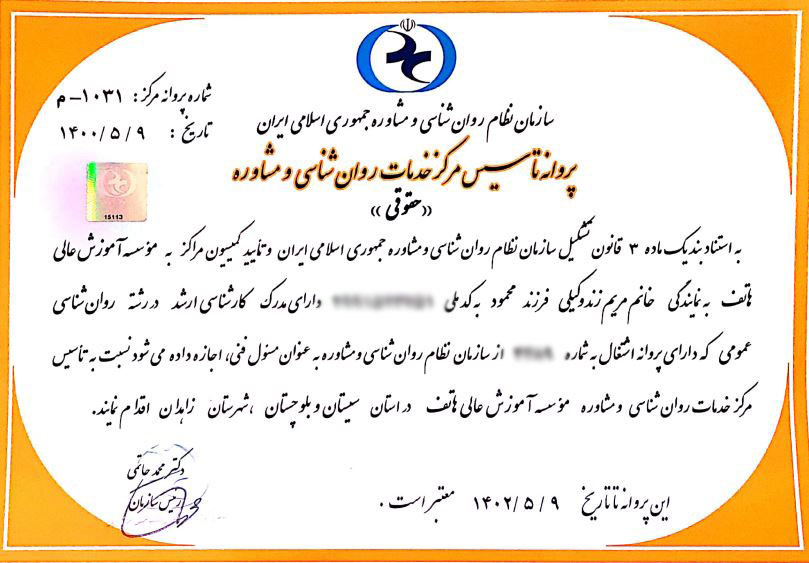 شماره پروانه مرکز: ۱۰۳۱-م
تاریخ: ۱۴۰۰/۵/۹
سازمان نظام روان شناسی و مشاوره جمهوری اسلامی ایران
پروانه تأسیس مرکز خدمات روان شناسی و مشاوره
«حقوقی»
15113
به استناد بند یک ماده ۳ قانون تشکیل سازمان نظام روان شناسی و مشاوره جمهوری اسلامی ایران و تأیید کمیسیون مراکز به مؤسسه آموزش عالی
هاتف به نمایندگی خانم مریم زندوکیلی فرزند محمود به کد ملی دارای مدرک کارشناسی ارشد در رشته روان شناسی
عمومی که دارای پروانه اشتغال به شماره از سازمان نظام روان شناسی و مشاوره به عنوان مسئول فنی، اجازه داده می شود نسبت به تأسیس
مرکز خدمات روان شناسی و مشاوره مؤسسه آموزش عالی هاتف در استان سیستان و بلوچستان، شهرستان زاهدان اقدام نمایند.
این پروانه تا تاریخ ۱۴۰۲/۵/۹ معتبر است.
دکتر محمد حاتمی
رئیس سازمان